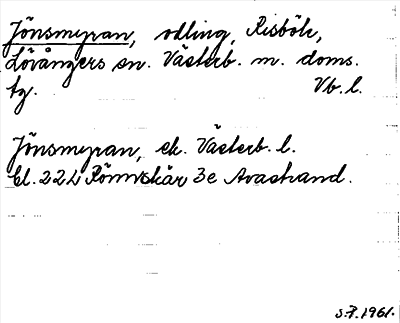 Jönsmyran, odling, Risböle,
Lövångers sn. Västerb. m. doms.
tg. Vb. l.
Jönsmyran, ek. Västerb. l.
bl. 22L Rönnskär 3e Avastrand.
S.F. 1961.